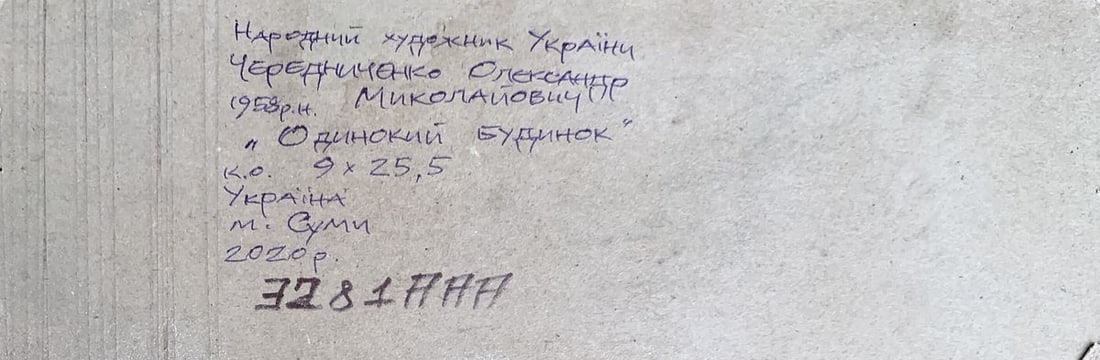 Народний художник України
Чередниченко Олександр
1958р.н. Миколайович
„ Одинокий будинок "
к.о. 9 x 25,5
Україна
м. Суми
2020р.
3281ААА